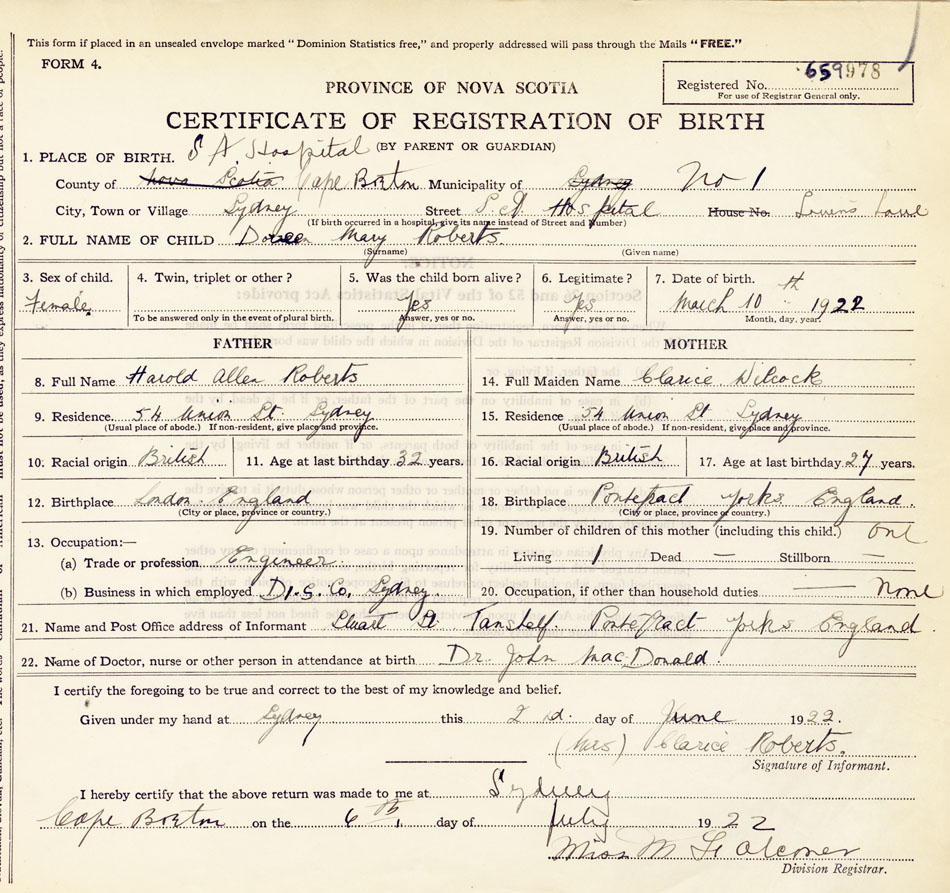 This form if placed in an unsealed envelope marked "Dominion Statistics free," and properly addressed will pass through the Mails "FREE."
FORM 4.
659978
Registered No.
For use of Registrar General only.
PROVINCE OF NOVA SCOTIA
CERTIFICATE OF REGISTRATION OF BIRTH
(BY PARENT OR GUARDIAN)
1. PLACE OF BIRTH. S A. Hospital
County of Nova Scotia Cape Breton Municipality of Sydney No 1
City, Town or Village Sydney Street Hospital House No.
(If birth occurred in a hospital, give its name instead of Street and Number)
2. FULL NAME OF CHILD Doreen Mary Roberts.
(Surname) (Given name)
3. Sex of child. Female.
4. Twin, triplet or other?
To be answered only in the event of plural birth.
5. Was the child born alive? Yes
Answer, yes or no.
6. Legitimate? Yes
Answer, yes or no.
7. Date of birth. March 10th 1922
Month, day, year.
FATHER
8. Full Name Harold Allen Roberts
9. Residence. 54 Union St. Sydney
(Usual place of abode.) If non-resident, give place and province.
10. Racial origin British 11. Age at last birthday 32 years.
12. Birthplace London. England
(City or place, province or country.)
13. Occupation:—
(a) Trade or profession Engineer.
(b) Business in which employed D.I.S. Co, Sydney.
MOTHER
14. Full Maiden Name Clarice Wilcock
15. Residence 54 Union St Sydney
(Usual place of abode.) If non-resident, give place and province.
16. Racial origin British 17. Age at last birthday 27 years.
18. Birthplace Pontefract Yorks England.
(City or place, province or country.)
19. Number of children of this mother (including this child.) one
Living 1 Dead — Stillborn —
20. Occupation, if other than household duties — None
21. Name and Post Office address of Informant Stuart St. Tanshelf. Pontefract Yorks England.
22. Name of Doctor, nurse or other person in attendance at birth Dr. John MacDonald.
I certify the foregoing to be true and correct to the best of my knowledge and belief.
Given under my hand at Sydney this 2nd. day of June 1922.
(Mrs) Clarice Roberts.
Signature of Informant.
I hereby certify that the above return was made to me at Sydney
Cape Breton on the 6th day of July 1922
Miss M Falconer
Division Registrar.